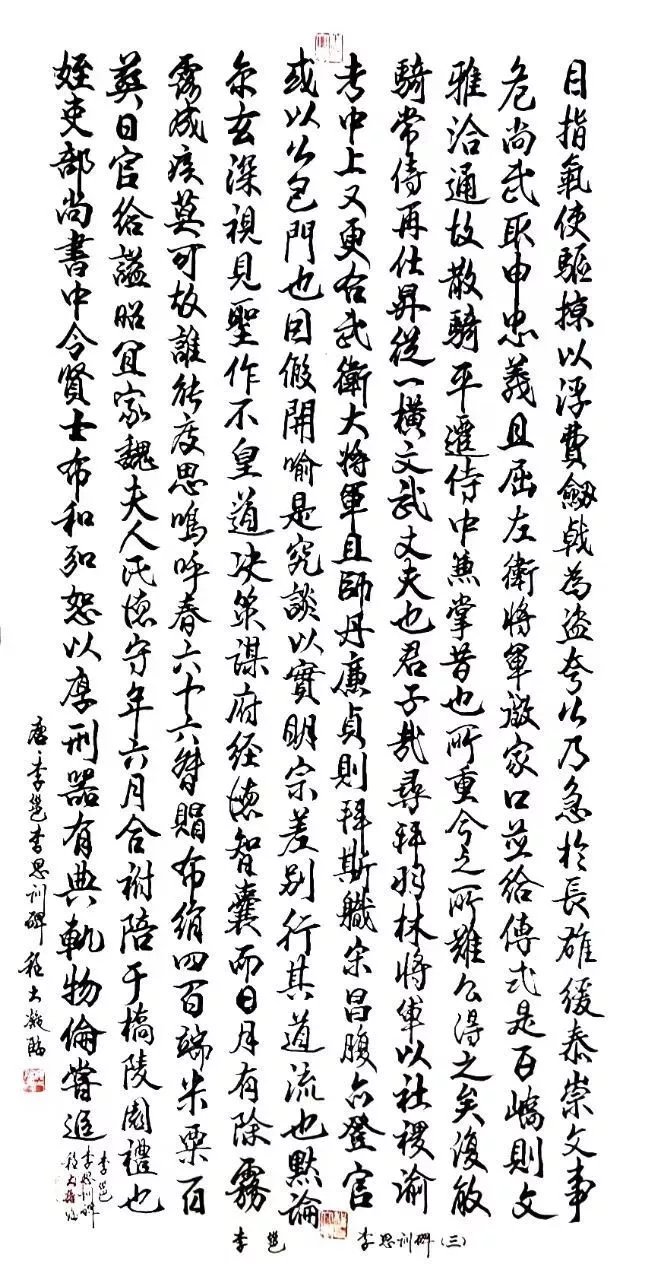 目指氣使驅掠以浮費劔戟為盗夸公乃急於長雄緩泰崇文事
危尚武取申忠義且屈左衛將軍敬家口並給傅弍是百嶠則文
雅洽通故散騎平遷侍中兼掌昔也所重今之所難公得之矣復敏
騎常侍再仕昇從一橫文武丈夫也君子哉尋拜羽林將軍以社稷諭
考中上又更右武衛大將軍且師丹廉貞則拜斯軄宋昌腹心登官
或以公邑門也因假開喻是究談以實明宗差別行其道流也默論
尔玄深視見聖作不皇道决策謀府經德智囊而日月有除霧
露成疾莫可故誰能度思鳴呼春六十六贈賵布絹四百端米粟百
葬日官給謚昭宜家魏夫人氏德守年六月合祔陪于橋陵園禮也
姪吏部尚書中令賢士布和弘恕以厚刑器有典軌物倫嘗追
唐李邕李思訓碑程大凝臨
李邕
李思訓碑
李邕 李思訓碑(三)